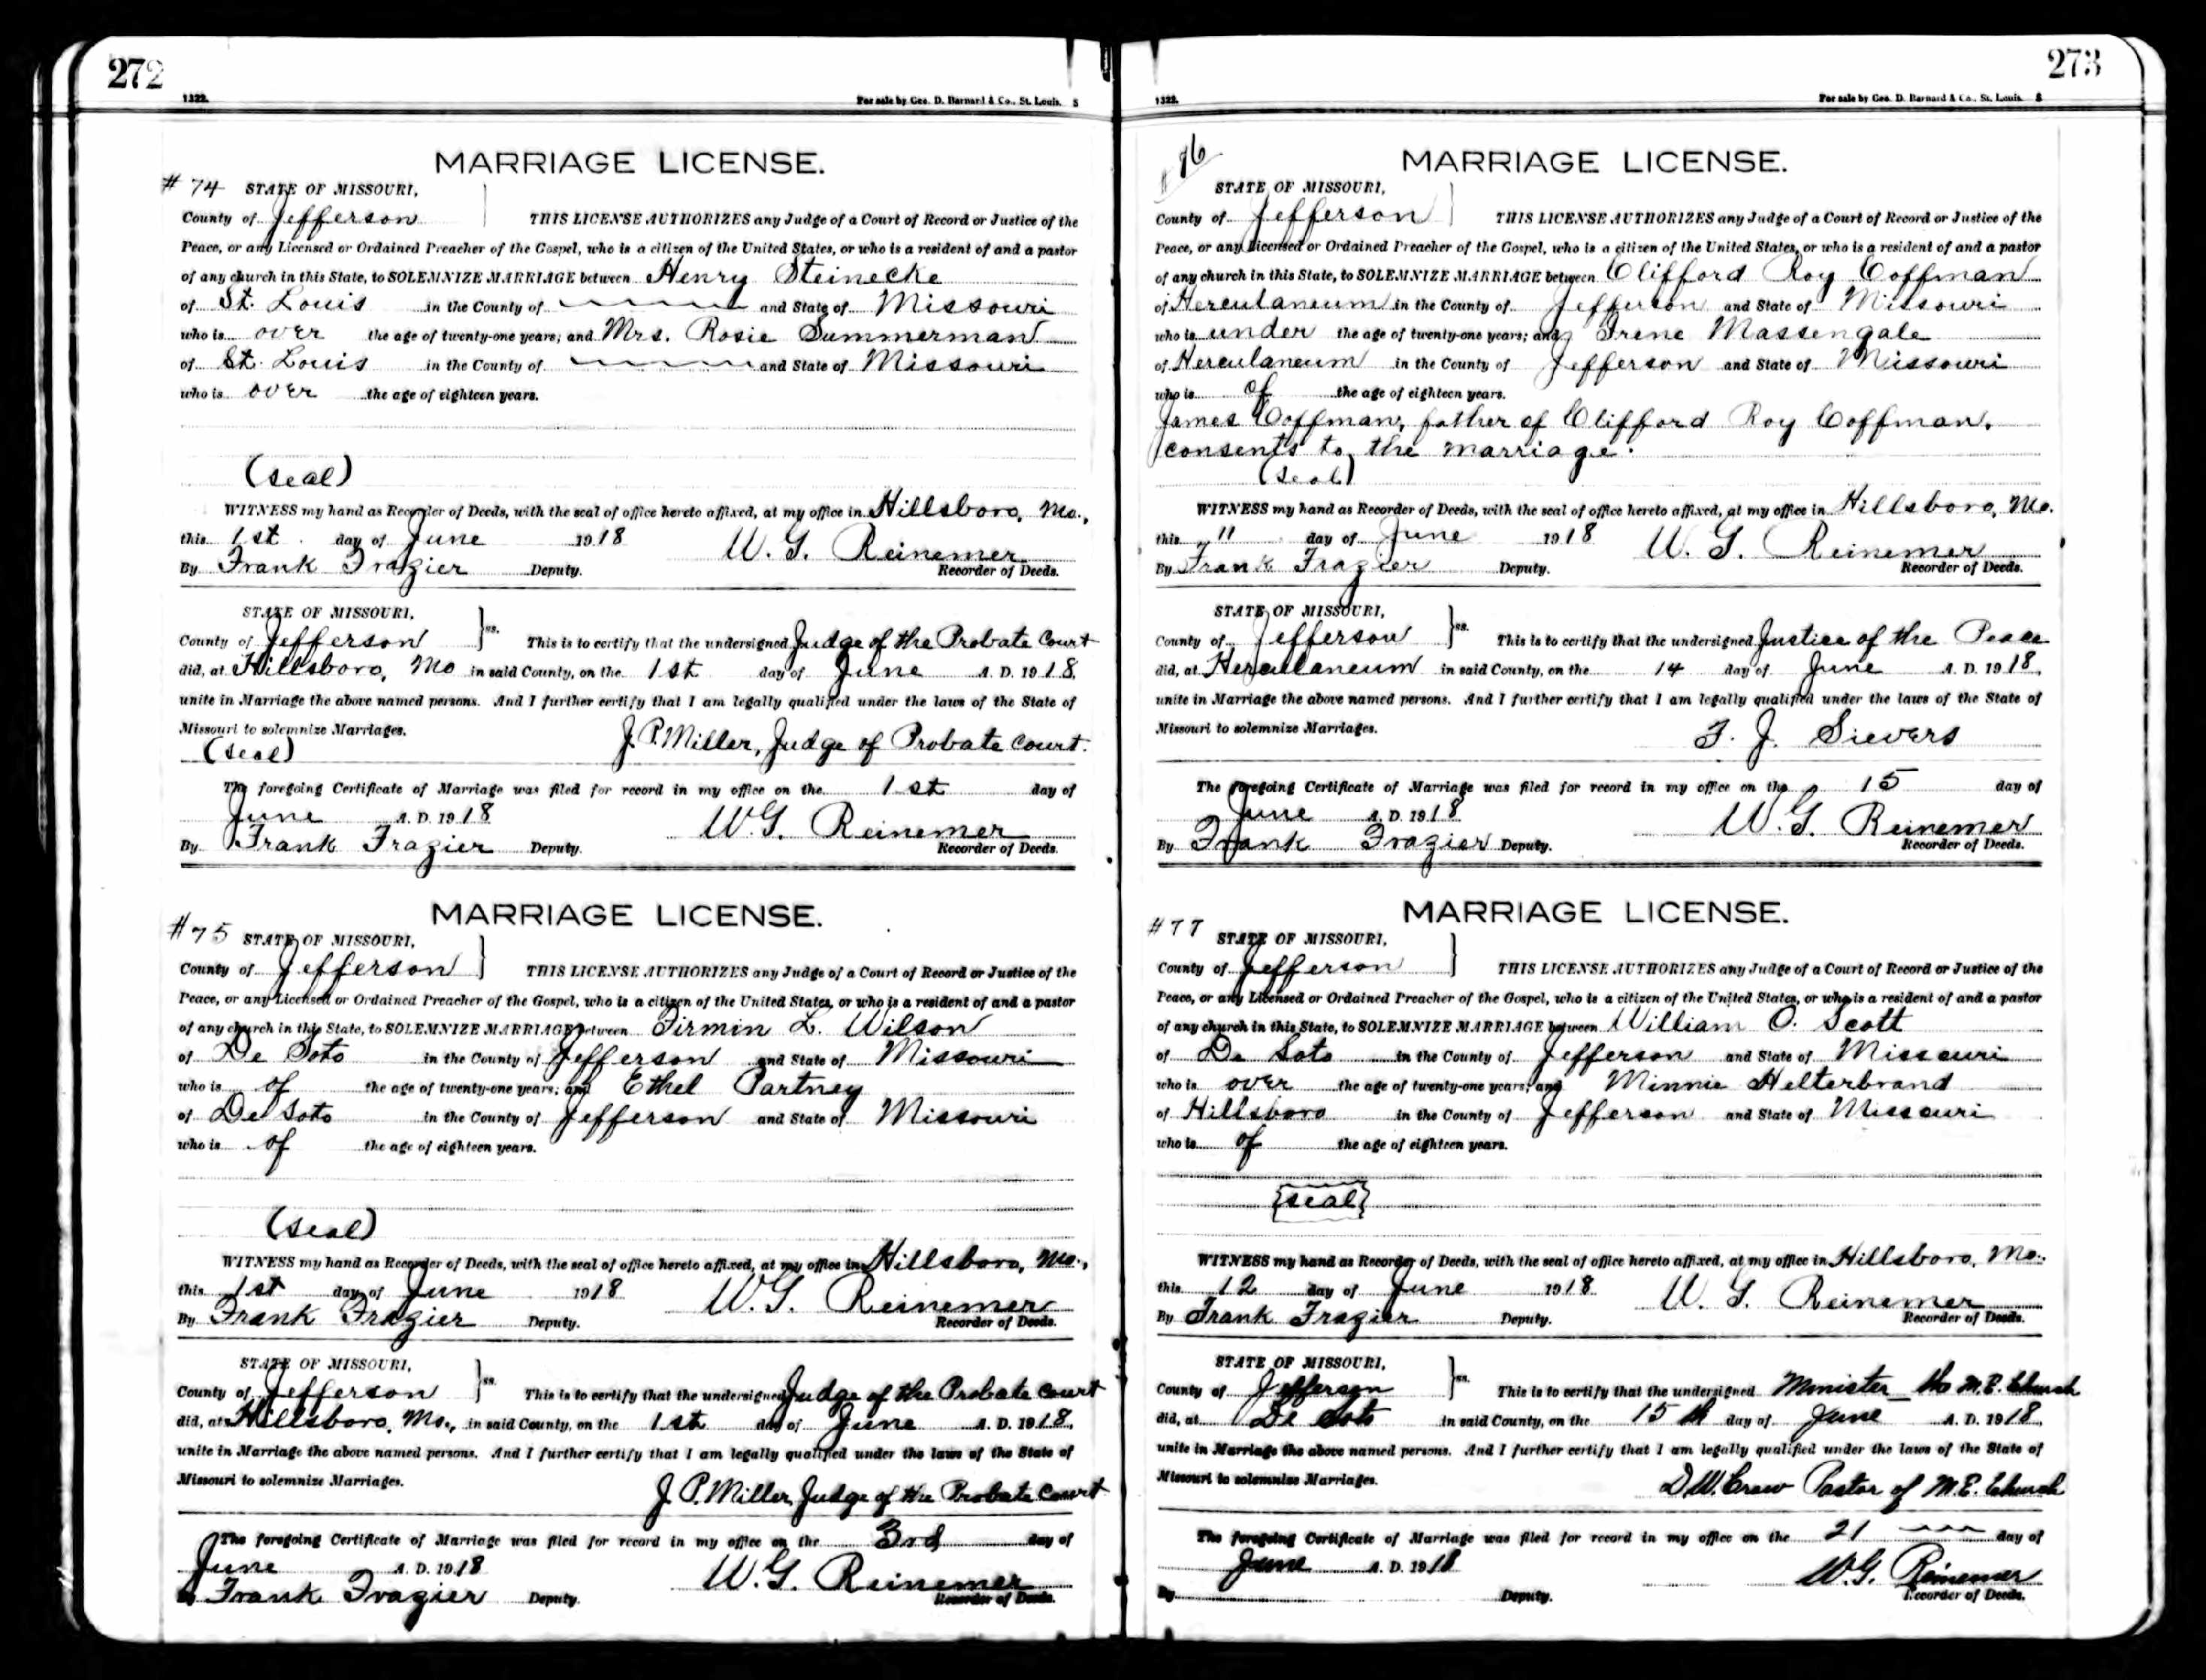 272
1322.
For sale by Geo. D. Barnard & Co., St. Louis. S
MARRIAGE LICENSE.
# 74 STATE OF MISSOURI,
County of Jefferson THIS LICENSE AUTHORIZES any Judge of a Court of Record or Justice of the
Peace, or any Licensed or Ordained Preacher of the Gospel, who is a citizen of the United States, or who is a resident of and a pastor
of any church in this State, to SOLEMNIZE MARRIAGE between Henry Steinecke
of St. Louis in the County of and State of Missouri
who is over the age of twenty-one years; and Mrs. Rosie Summerman
of St. Louis in the County of and State of Missouri
who is over the age of eighteen years.
(seal)
WITNESS my hand as Recorder of Deeds, with the seal of office hereto affixed, at my office in Hillsboro, Mo.,
this 1st day of June 1918 W. G. Reinemer
By Frank Frazier Deputy. Recorder of Deeds.
STATE OF MISSOURI,
County of Jefferson } ss. This is to certify that the undersigned Judge of the Probate Court
did, at Hillsboro, Mo in said County, on the 1st day of June A. D. 1918,
unite in Marriage the above named persons. And I further certify that I am legally qualified under the laws of the State of
Missouri to solemnize Marriages.
(seal) J. P. Miller, Judge of Probate Court.
The foregoing Certificate of Marriage was filed for record in my office on the 1st day of
June A. D. 1918 W. G. Reinemer
By Frank Frazier Deputy. Recorder of Deeds.
MARRIAGE LICENSE.
# 75 STATE OF MISSOURI,
County of Jefferson } THIS LICENSE AUTHORIZES any Judge of a Court of Record or Justice of the
Peace, or any Licensed or Ordained Preacher of the Gospel, who is a citizen of the United States, or who is a resident of and a pastor
of any church in this State, to SOLEMNIZE MARRIAGE between Firmin L. Wilson
of De Soto in the County of Jefferson and State of Missouri
who is of the age of twenty-one years; and Ethel Partney
of De Soto in the County of Jefferson and State of Missouri
who is of the age of eighteen years.
(seal)
WITNESS my hand as Recorder of Deeds, with the seal of office hereto affixed, at my office in Hillsboro, Mo.,
this 1st day of June 1918 W. G. Reinemer
By Frank Frazier Deputy. Recorder of Deeds.
STATE OF MISSOURI,
County of Jefferson } ss. This is to certify that the undersigned Judge of the Probate Court
did, at Hillsboro, Mo., in said County, on the 1st day of June A. D. 1918,
unite in Marriage the above named persons. And I further certify that I am legally qualified under the laws of the State of
Missouri to solemnize Marriages.
J. P. Miller, Judge of the Probate Court
The foregoing Certificate of Marriage was filed for record in my office on the 3rd day of
June A. D. 1918 W. G. Reinemer
Frank Frazier Deputy. Recorder of Deeds.
273
1322.
For sale by Geo. D. Barnard & Co., St. Louis. S
# 76
MARRIAGE LICENSE.
STATE OF MISSOURI,
County of Jefferson THIS LICENSE AUTHORIZES any Judge of a Court of Record or Justice of the
Peace, or any Licensed or Ordained Preacher of the Gospel, who is a citizen of the United States, or who is a resident of and a pastor
of any church in this State, to SOLEMNIZE MARRIAGE between Clifford Roy Coffman
of Herculaneum in the County of Jefferson and State of Missouri
who is under the age of twenty-one years; and Irene Massengale
of Herculaneum in the County of Jefferson and State of Missouri
who is of the age of eighteen years.
James Coffman, father of Clifford Roy Coffman,
consents to the marriage.
(seal)
WITNESS my hand as Recorder of Deeds, with the seal of office hereto affixed, at my office in Hillsboro, Mo.
this 11 day of June 1918 W. G. Reinemer
By Frank Frazier Deputy. Recorder of Deeds.
STATE OF MISSOURI,
County of Jefferson } ss. This is to certify that the undersigned Justice of the Peace
did, at Herculaneum in said County, on the 14 day of June A. D. 1918,
unite in Marriage the above named persons. And I further certify that I am legally qualified under the laws of the State of
Missouri to solemnize Marriages.
F. J. Sievers
The foregoing Certificate of Marriage was filed for record in my office on the 15 day of
June A. D. 1918 W. G. Reinemer
By Frank Frazier Deputy. Recorder of Deeds.
MARRIAGE LICENSE.
# 77
STATE OF MISSOURI,
County of Jefferson } THIS LICENSE AUTHORIZES any Judge of a Court of Record or Justice of the
Peace, or any Licensed or Ordained Preacher of the Gospel, who is a citizen of the United States, or who is a resident of and a pastor
of any church in this State, to SOLEMNIZE MARRIAGE between William O. Scott
of De Soto in the County of Jefferson and State of Missouri
who is over the age of twenty-one years; and Minnie Helterbrand
of Hillsboro in the County of Jefferson and State of Missouri
who is of the age of eighteen years.
{seal}
WITNESS my hand as Recorder of Deeds, with the seal of office hereto affixed, at my office in Hillsboro, Mo.
this 12 day of June 1918 W. G. Reinemer
By Frank Frazier Deputy. Recorder of Deeds.
STATE OF MISSOURI,
County of Jefferson } ss. This is to certify that the undersigned Minister M.E. Church
did, at De Soto in said County, on the 15th day of June A. D. 1918,
unite in Marriage the above named persons. And I further certify that I am legally qualified under the laws of the State of
Missouri to solemnize Marriages.
D.W. Crow Pastor of M.E. Church
The foregoing Certificate of Marriage was filed for record in my office on the 21 day of
June A. D. 1918 W. G. Reinemer
By Deputy. Recorder of Deeds.